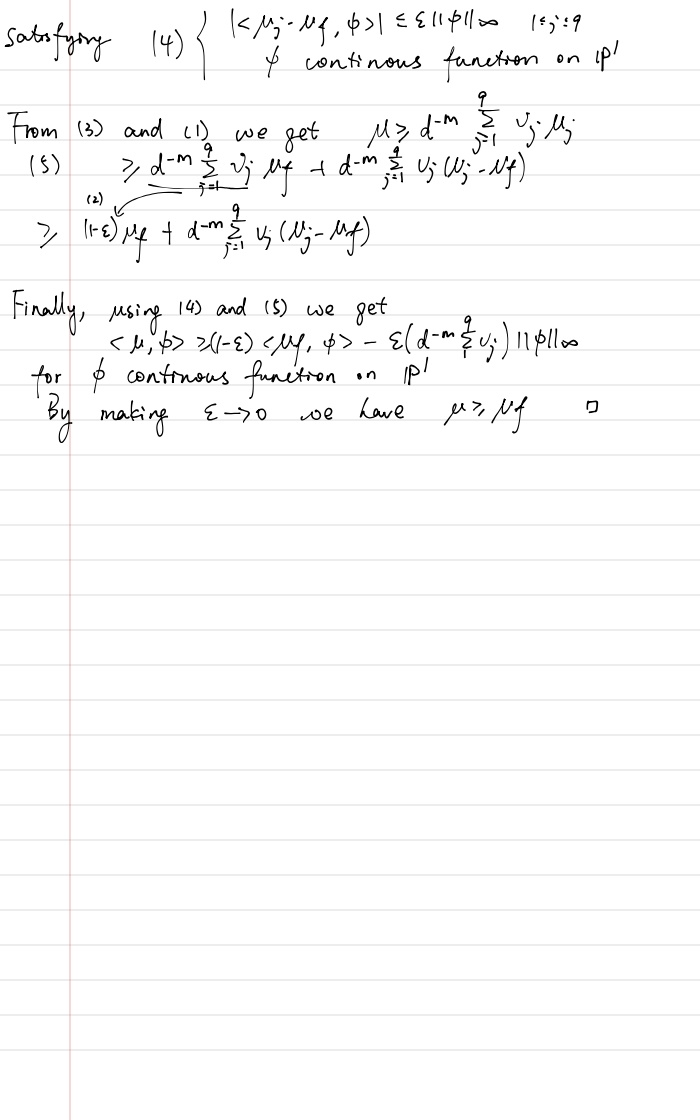 satisfying (4) { |<μ_j - μ_f, φ>| ≤ ε||φ||∞ 1≤j≤q
φ continous function on ℙ¹
From (3) and (1) we get μ ≥ d^{-m} Σ_{j=1}^{q} ν_j μ_j
(5) ≥ d^{-m} Σ_{j=1}^{q} ν_j μ_f + d^{-m} Σ_{j=1}^{q} ν_j (μ_j - μ_f)
(2)
≥ (1-ε) μ_f + d^{-m} Σ_{j=1}^{q} ν_j (μ_j - μ_f)
Finally, using (4) and (5) we get
<μ, φ> ≥ (1-ε) <μ_f, φ> - ε(d^{-m} Σ_{1}^{q} ν_j) ||φ||∞
for φ continous function on ℙ¹
By making ε→0 we have μ ≥ μ_f □